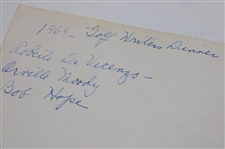 1969 - Golf Writers Dinner
Roberto De Vicenzo -
Orville Moody
Bob Hope